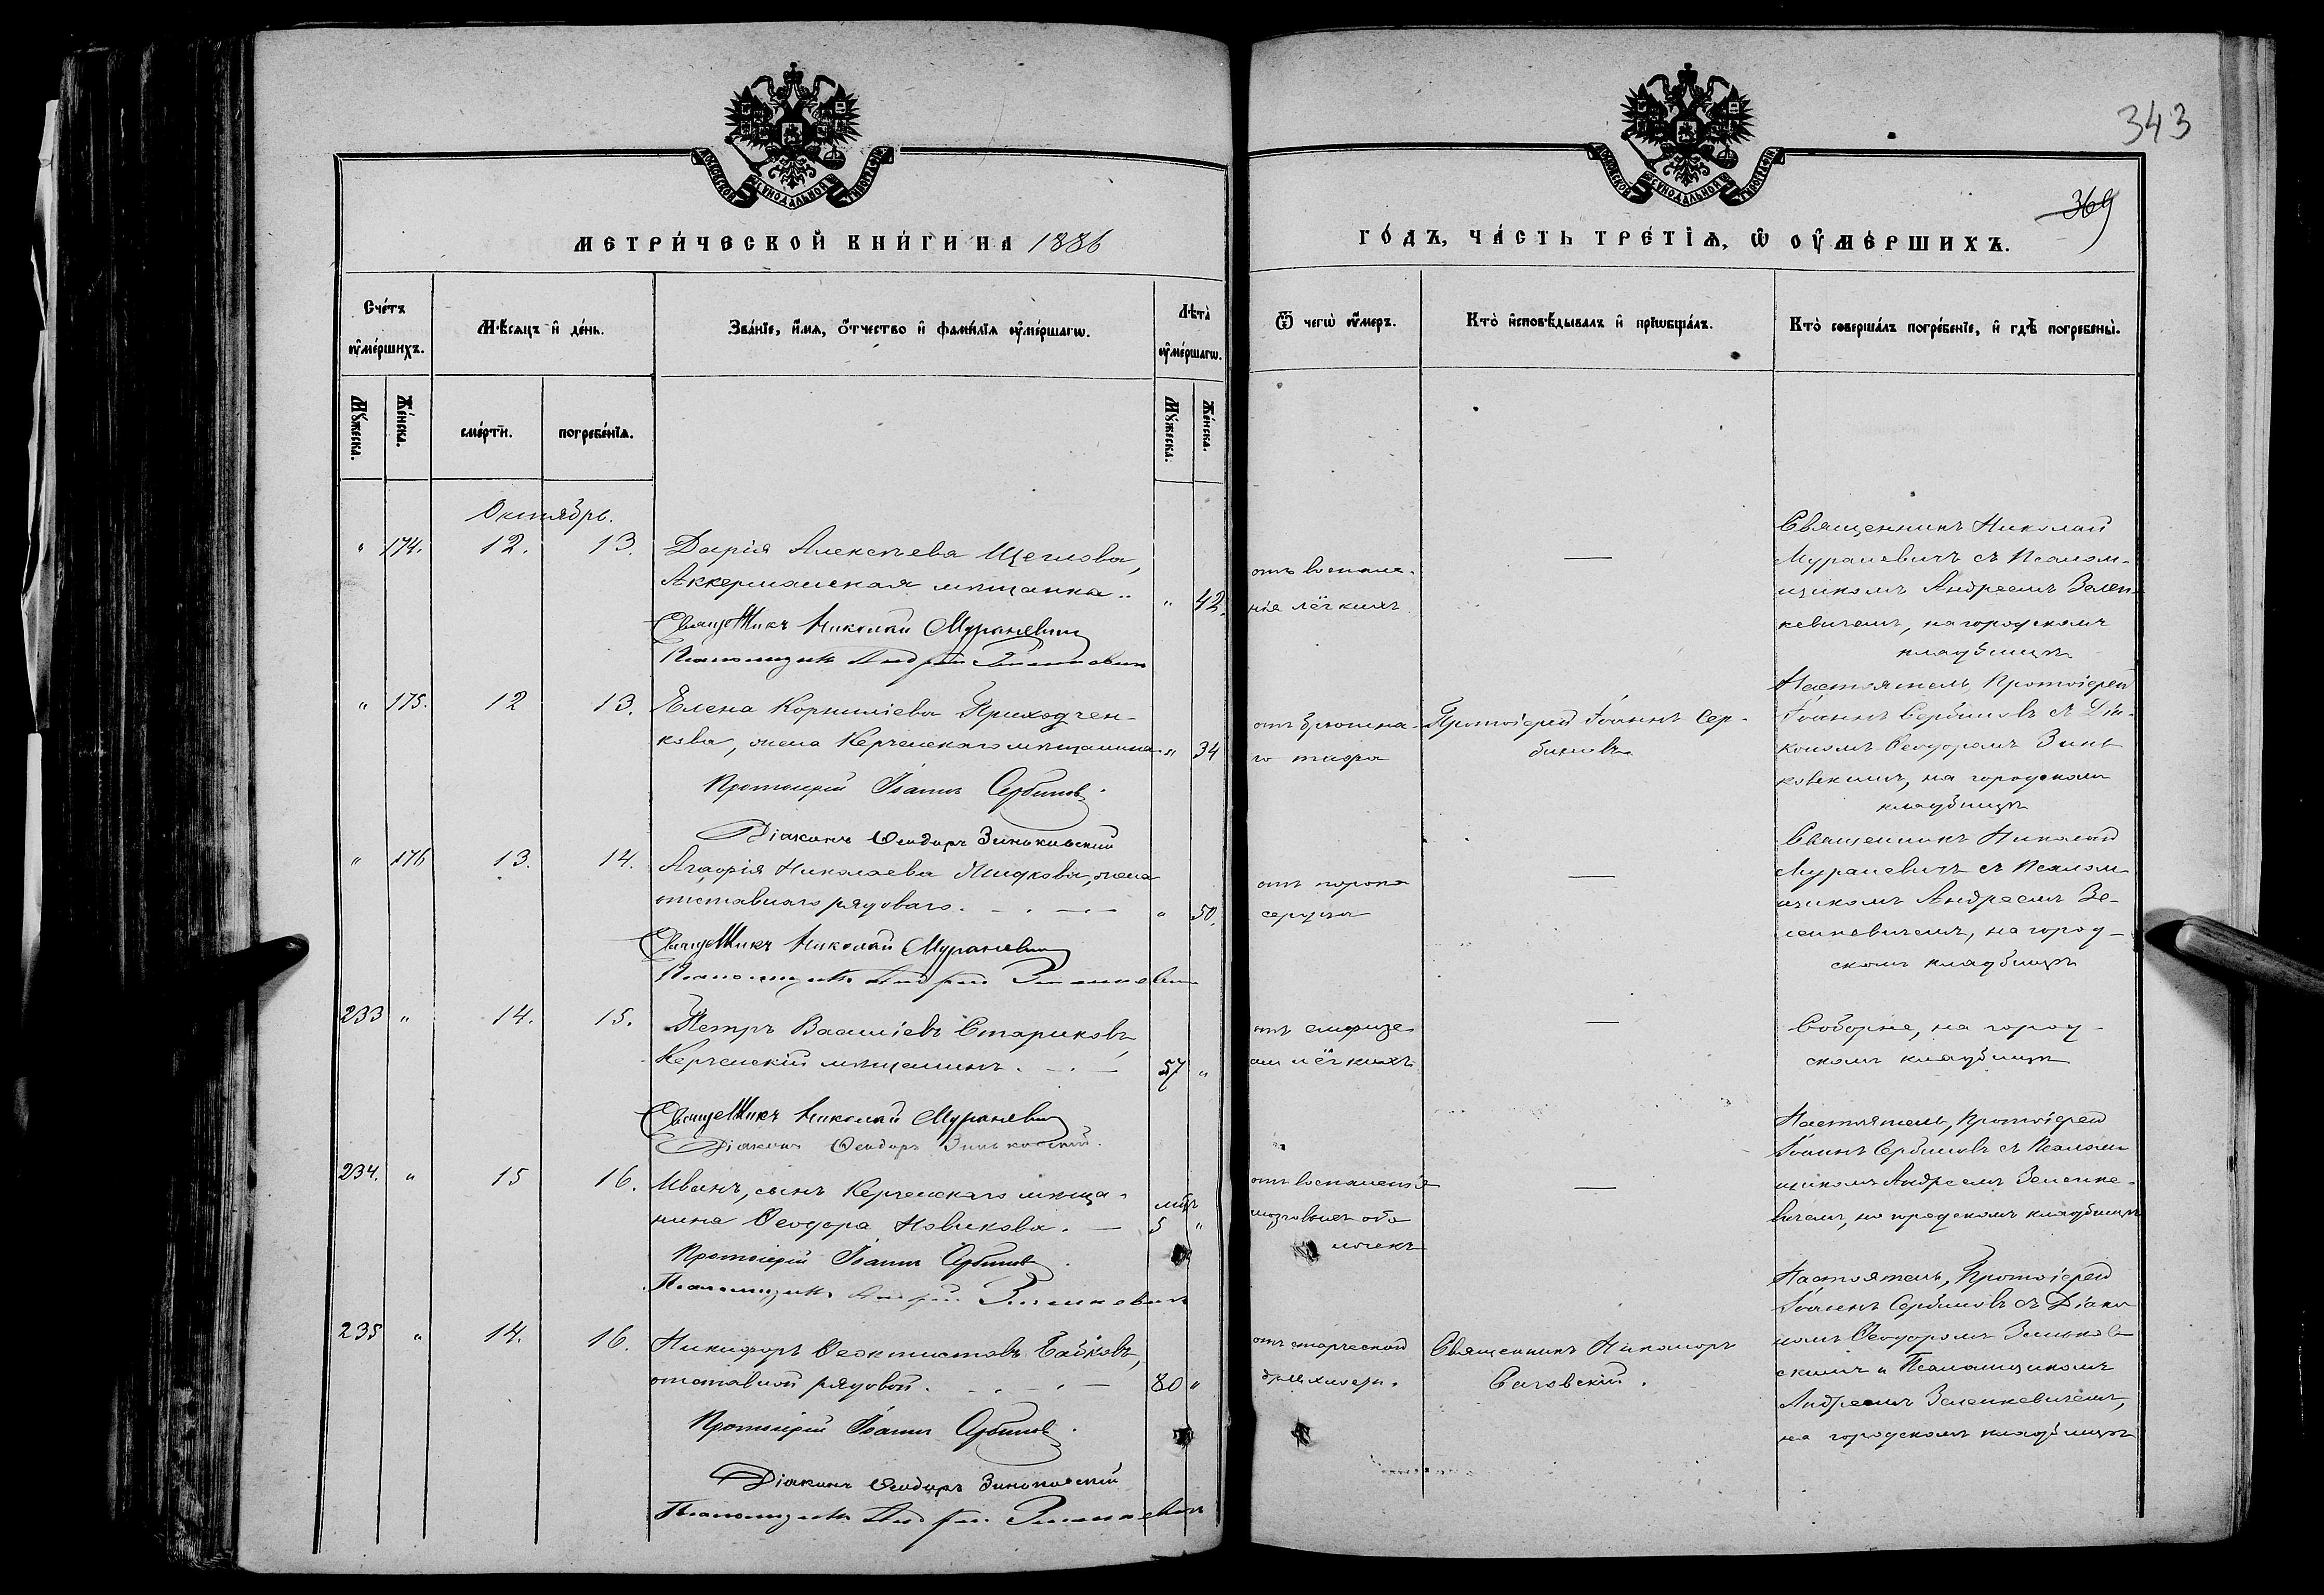 343
369
МОСКОВСКОЙ СѴНОДАЛЬНОЙ ТИПОГРАФІИ
МОСКОВСКОЙ СѴНОДАЛЬНОЙ ТИПОГРАФІИ
МЕТРИ́ЧЕСКОЙ КНИ́ГИ НА 1886
ГО́ДЪ, ЧА́СТЬ ТРЕ́ТІѦ, Ѡ҆ ОУ҆МЕ́РШИХЪ.
Сче́тъ оу҆ме́ршихъ.
Му́жеска.
Же́нска.
Мѣ́сяцъ и҆ де́нь.
сме́рти.
погребе́нїѧ.
Зва́нїе, и҆́мѧ, ѻ҆́тчество и҆ фами́лїѧ оу҆ме́ршагѡ.
Лѣта̀ оу҆ме́ршагѡ.
Му́жеска.
Же́нска.
Ѿ чегѡ̀ оу҆́меръ.
Кто̀ и҆сповѣ́дывалъ и҆ прїѡбща́лъ.
Кто̀ соверша́лъ погребе́нїе, и҆ гдѣ̀ погребены̀.
Октябрь.
" 174. 12. 13.
Дарія Алексѣева Щеглова,
Аккерманская мѣщанка
" 42.
Священникъ Николай Мураневич
Псаломщикъ Андрей Зеленкевич
отъ воспале-
нія лёгкихъ
—
Священникъ Николай
Мураневичъ съ Псалом-
щикомъ Андреемъ Зелен-
кевичемъ, на городскомъ
кладбищѣ
" 175. 12 13.
Елена Корниліева Приходчен-
кова, жена Керченскаго мѣщанина
" 34
Протоіерей Іоаннъ Сербинов
Діаконъ Ѳеодоръ Зиньковскій
отъ брюшна-
го тифа
Протоіерей Іоаннъ Сер-
биновъ
Настоятель, Протоіерей
Іоаннъ Сербиновъ съ Діа-
кономъ Ѳеодоромъ Зинь-
ковскимъ, на городскомъ
кладбищѣ
" 176 13. 14.
Агафія Николаева жена
отставнаго рядоваго.
" 50.
Священникъ Николай Мураневич
Псаломщикъ Андрей Зеленкевич
отъ порока
сердца
—
Священникъ Николай
Мураневичъ съ Псалом-
щикомъ Андреемъ Зе-
ленкевичемъ, на город-
скомъ кладбищѣ
233 " 14. 15.
Петръ Василіевъ Стариковъ,
Керченскій мѣщанинъ.
57 "
Священникъ Николай Мураневич
Діаконъ Ѳеодоръ Зиньковскій.
отъ емфизе-
мы лёгкихъ
—
Соборне, на город-
скомъ кладбищѣ
234. " 15 16.
Иванъ, сынъ Керченскаго мѣща-
нина Ѳеодора Новикова.
мѣс
5 "
Протоіерей Іоаннъ Сербинов
Псаломщикъ Андрей Зеленкевич
отъ воспаленія
мозговыхъ обо
лочекъ
—
Настоятель, Протоіерей
Іоаннъ Сербиновъ съ Псалом
щикомъ Андреемъ Зеленке-
вичемъ, на городскомъ кладбищѣ
235 " 14. 16.
Никифоръ Ѳеоктистовъ Байковъ,
отставной рядовой.
80 "
Протоіерей Іоаннъ Сербинов
Діаконъ Ѳеодоръ Зиньковскій
Псаломщикъ Андрей Зеленкевич
отъ старческой
дряхлости.
Священникъ Никаноръ
Настоятель, Протоіерей
Іоаннъ Сербиновъ съ Діако
номъ Ѳеодоромъ Зиньков
скимъ и Псаломщикомъ
Андреемъ Зеленкевичемъ,
на городскомъ кладбищѣ